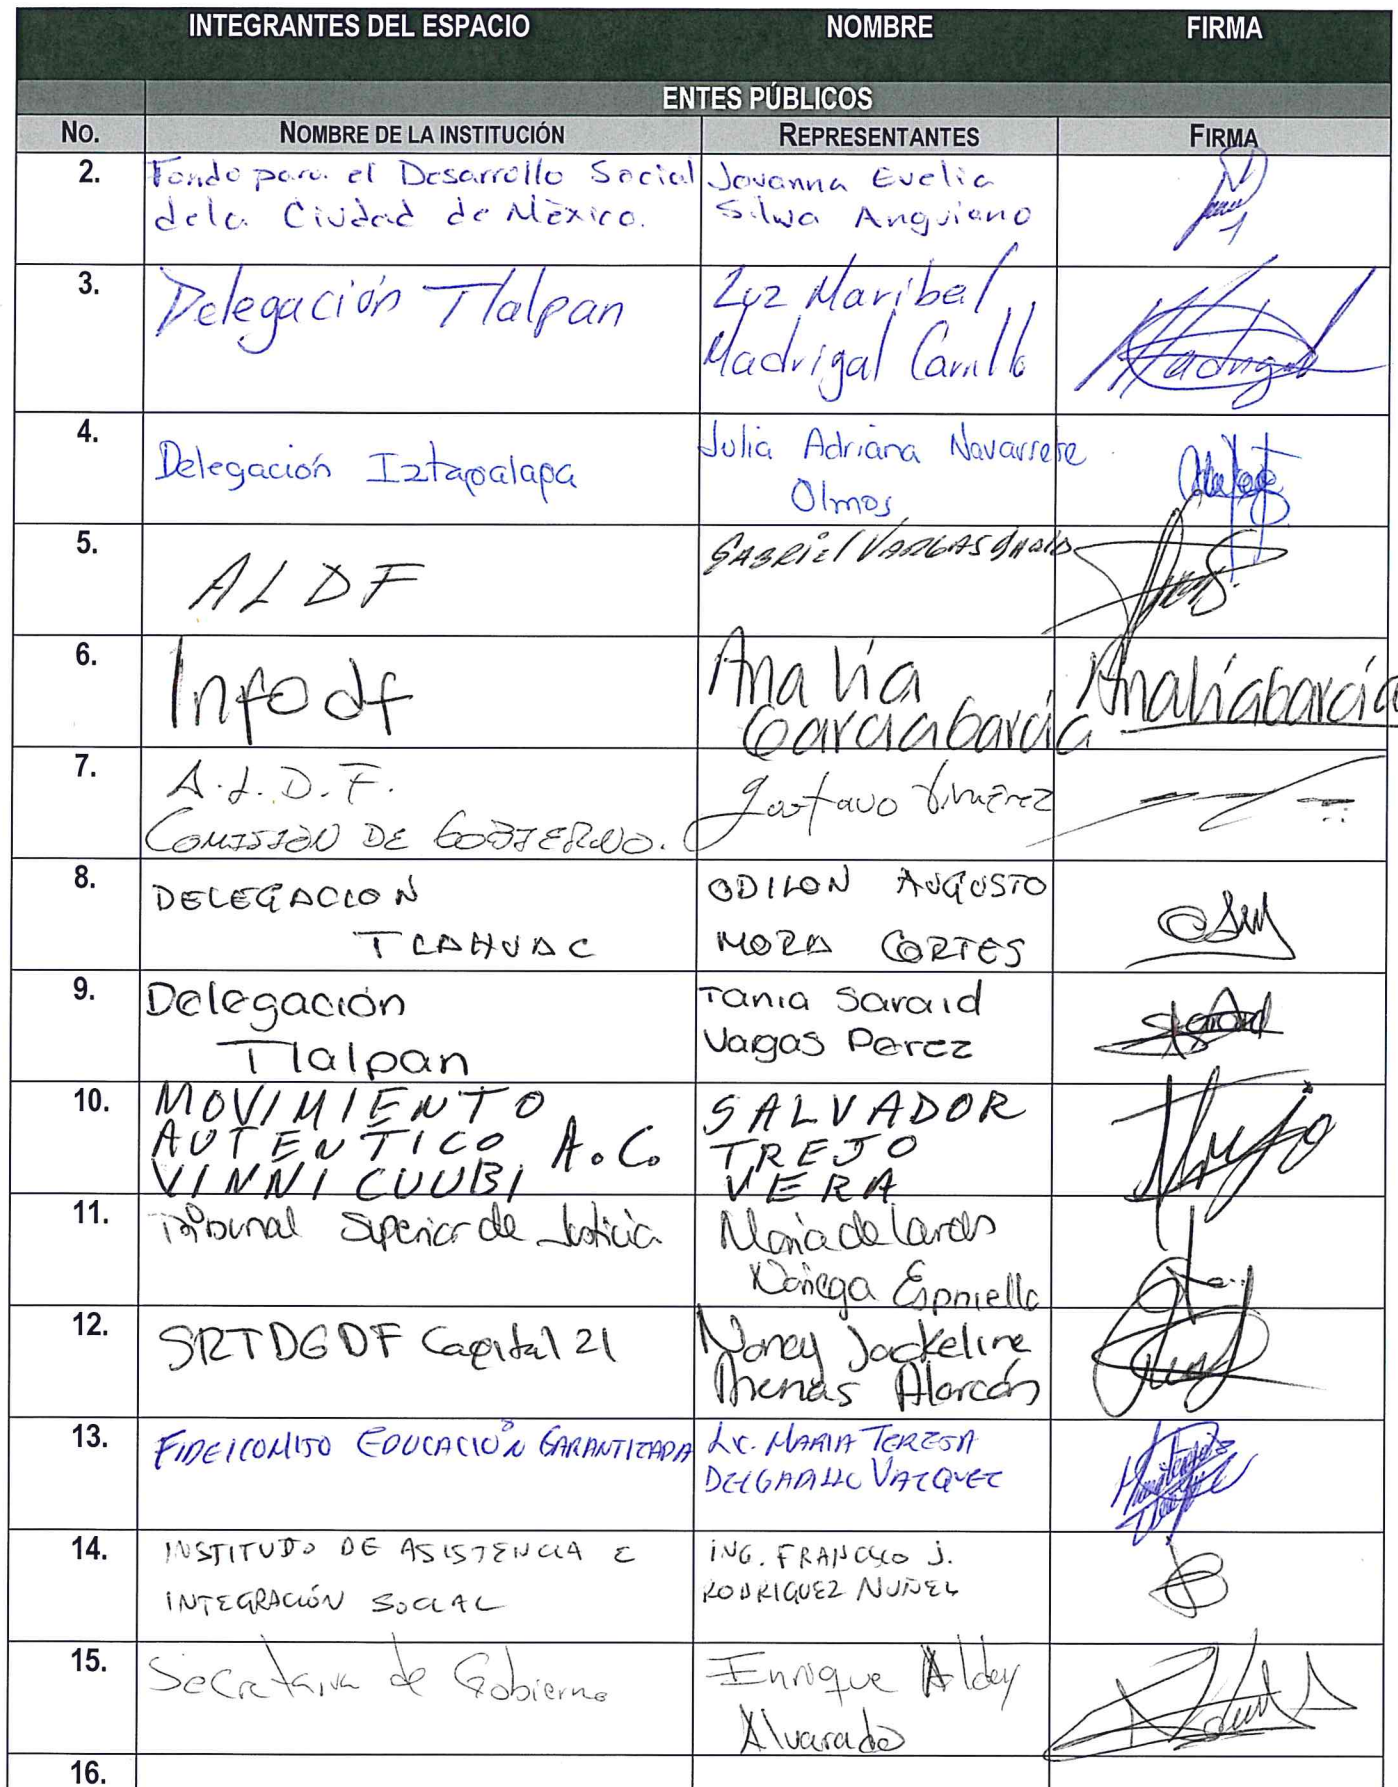 INTEGRANTES DEL ESPACIO NOMBRE FIRMA
ENTES PÚBLICOS
No. NOMBRE DE LA INSTITUCIÓN REPRESENTANTES FIRMA
2. Fondo para el Desarrollo Social Jovanna Evelia
dela Ciudad de México. Silva Anguiano
3. Delegación Tlalpan Luz Maribel
Madrigal Carrillo
Madrigal
4. Delegación Iztapalapa Julia Adriana Navarrete
Olmos
5. ALDF GABRIEL VARGAS
6. Infodf Ana lía
García García
Analíagarcía
7. A.L.D.F. Gustavo Jiménez
COMISION DE GOBIERNO.
8. DELEGACION ODILON AUGUSTO
TLAHUAC MORA CORTES
9. Delegación Tania Saraid
Tlalpan Vargas Perez
10. MOVIMIENTO SALVADOR
AUTENTICO A.C. TREJO
VINNI CUUBI VERA
Trejo
11. Tribunal Superior de Justicia María de Lourdes
Noriega
12. SRTDGDF Capital 21 Nancy Jackeline
Alarcón
13. FIDEICOMISO EDUCACIÓN GARANTIZADA Lic. MARIA TERESA
DELGADILLO VAZQUEZ
14. INSTITUTO DE ASISTENCIA E ING. FRANCISCO J.
INTEGRACIÓN SOCIAL RODRIGUEZ NUÑEZ
15. Secretaria de Gobierno Enrique Alday
Alvarado
16.